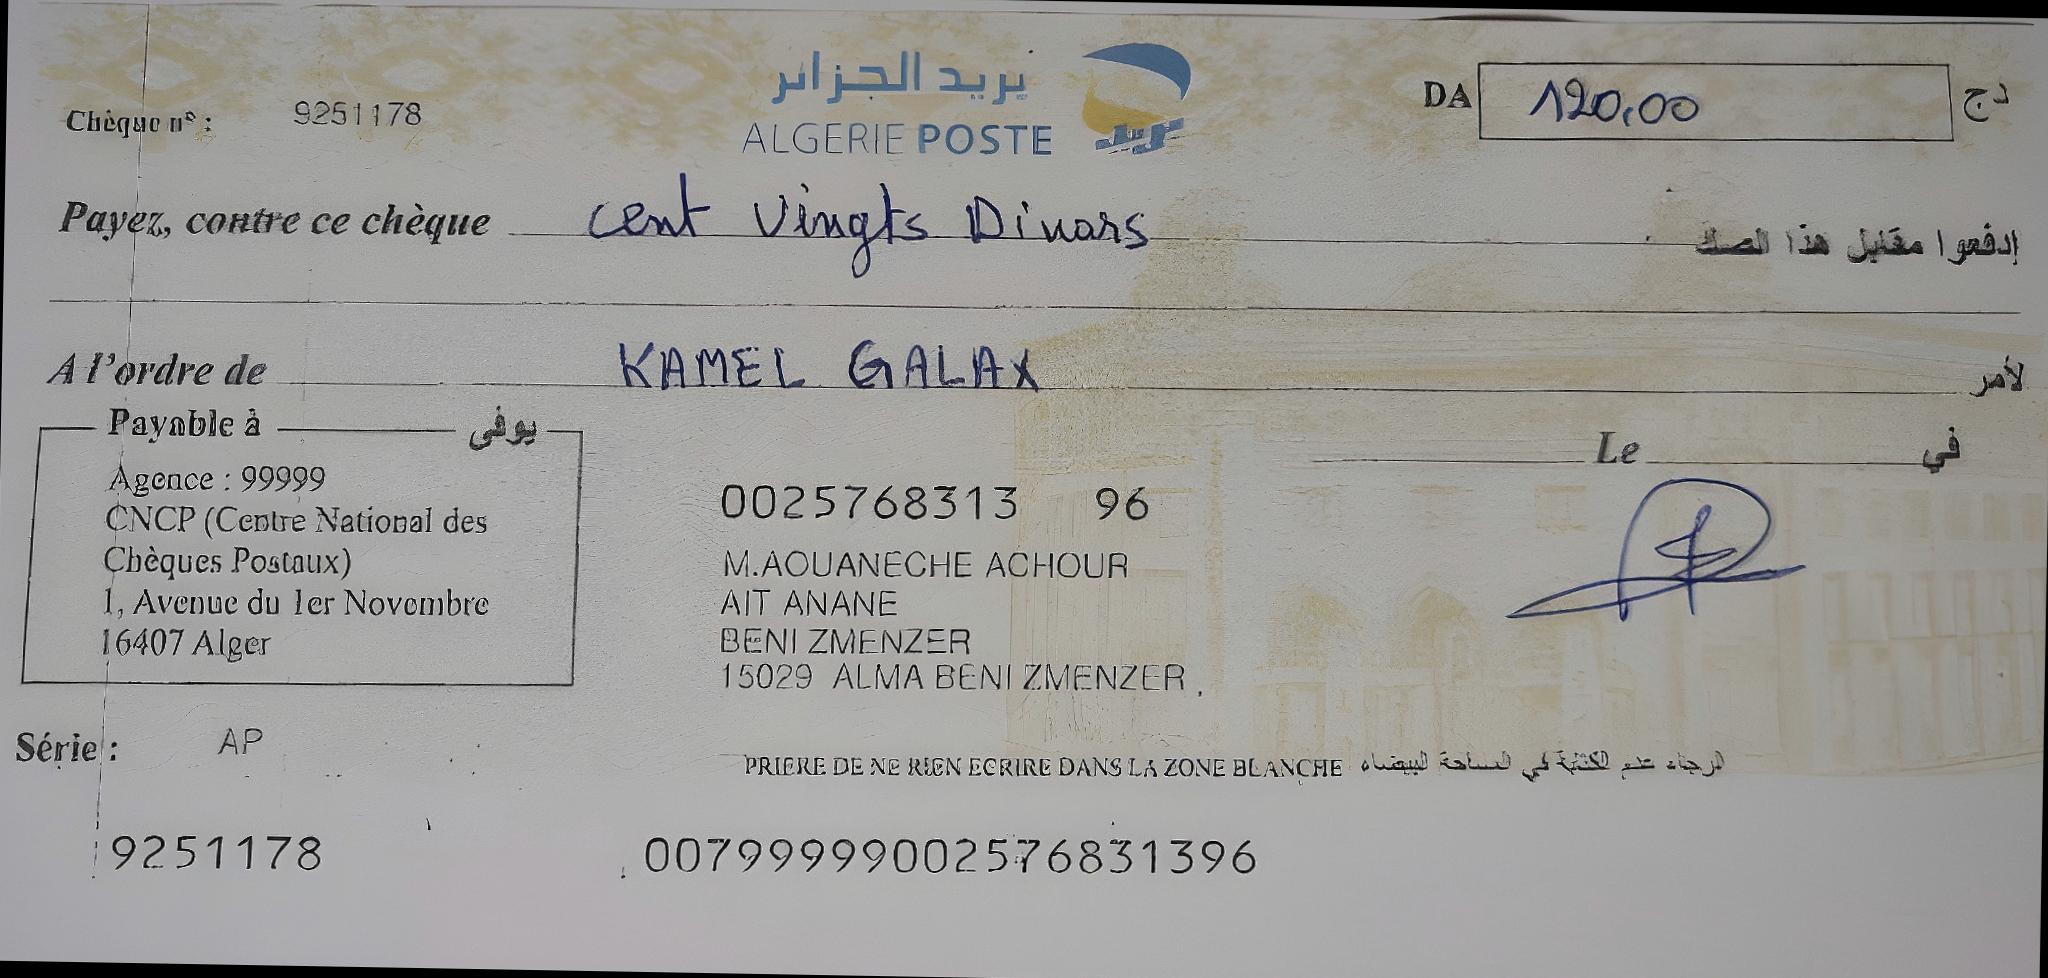 بريد الجزائر
ALGERIE POSTE
بريد
Chèque n° : 9251178
DA 120,00 دج
Payez, contre ce chèque Cent Vingts Dinars إدفعوا مقابل هذا الصك
A l'ordre de KAMEL GALAX لأمر
Payable à يوفى
Le في
Agence : 99999
CNCP (Centre National des
Chèques Postaux)
1, Avenue du 1er Novembre
16407 Alger
0025768313 96
M.AOUANECHE ACHOUR
AIT ANANE
BENI ZMENZER
15029 ALMA BENI ZMENZER
Série : AP
PRIERE DE NE RIEN ECRIRE DANS LA ZONE BLANCHE الرجاء عدم الكتابة في المساحة البيضاء
9251178 00799999002576831396